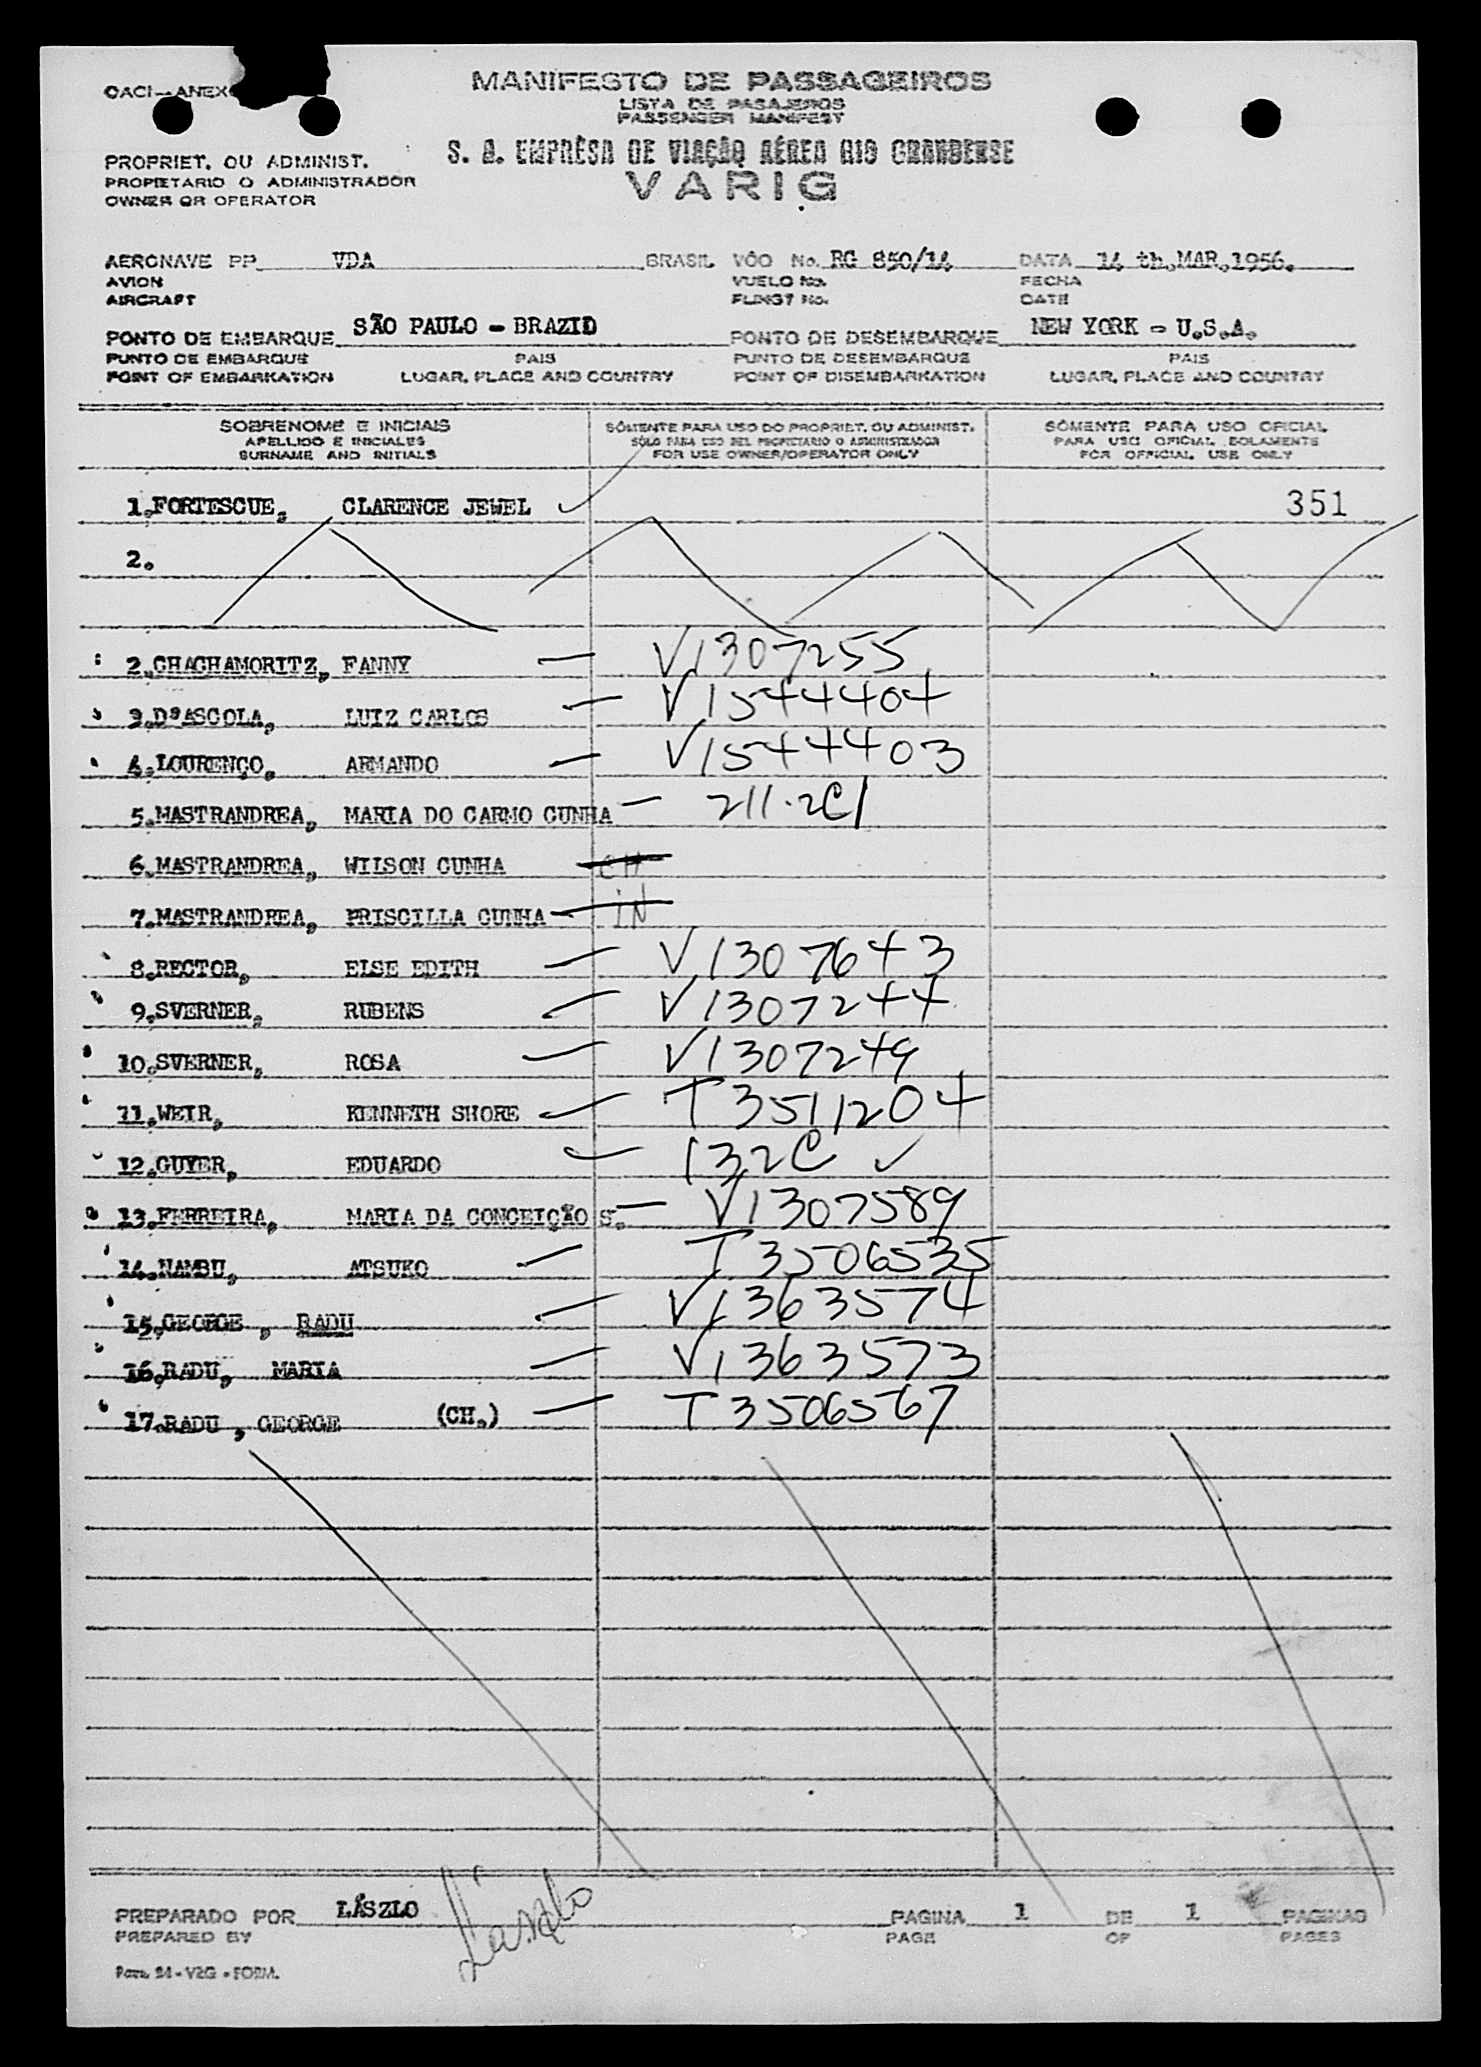 OACI-ANEXO
MANIFESTO DE PASSAGEIROS
LISTA DE PASAJEROS
PASSENGER MANIFEST
PROPRIET. OU ADMINIST.
PROPIETARIO O ADMINISTRADOR
OWNER OR OPERATOR
S. A. EMPRÊSA DE VIAÇÃO AÉREA RIO GRANDENSE
VARIG
AERONAVE PP VDA BRASIL VÔO No. RG 850/14 DATA 14 th,MAR,1956.
AVION VUELO No. FECHA
AIRCRAFT FLINGT No. DATE
PONTO DE EMBARQUE SÃO PAULO - BRAZID PONTO DE DESEMBARQUE NEW YORK - U.S.A.
PUNTO DE EMBARQUE PAIS PUNTO DE DESEMBARQUE PAIS
POINT OF EMBARKATION LUGAR, PLACE AND COUNTRY POINT OF DISEMBARKATION LUGAR, PLACE AND COUNTRY
SOBRENOME E INICIAIS SÓMENTE PARA USO DO PROPRIET. OU ADMINIST. SÓMENTE PARA USO OFICIAL
APELLIDO E INICIALES SÓLO PARA USO DEL PROPIETARIO O ADMINISTRADOR PARA USO OFICIAL SOLAMENTE
SURNAME AND INITIALS FOR USE OWNER/OPERATOR ONLY FOR OFFICIAL USE ONLY
1.FORTESCUE, CLARENCE JEWEL 351
2.
2.CHACHAMORITZ, FANNY V1307255
3.D'ASCOLA, LUIZ CARLOS V1544404
4.LOURENÇO, ARMANDO V1544403
5.MASTRANDREA, MARIA DO CARMO CUNHA 211.2C1
6.MASTRANDREA, WILSON CUNHA CH
7.MASTRANDREA, PRISCILLA CUNHA IN
8.RECTOR, ELSE EDITH V1307643
9.SVERNER, RUBENS V1307244
10.SVERNER, ROSA V1307249
11.WEIR, KENNETH SHORE T3511204
12.GUYER, EDUARDO 132C ✓
13.FERREIRA, MARIA DA CONCEIÇÃO S. V1307589
14.NAMBU, ATSUKO T3506535
15.GEORGE , RADU V1363574
16.RADU, MARIA V1363573
17.RADU , GEORGE (CH.) T3506567
PREPARADO POR LÁSZLO László PAGINA 1 DE 1 PAGINAS
PREPARED BY PAGE OF PAGES
94-VRG-FORM.